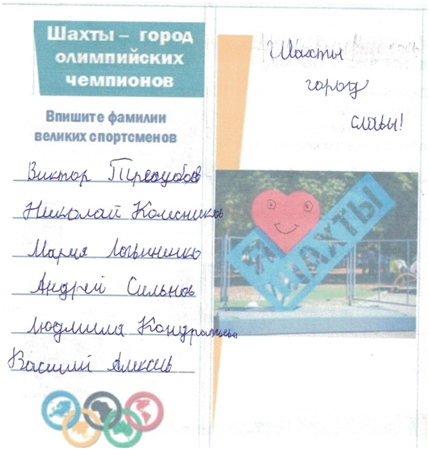 Шахты – город
олимпийских
чемпионов
Впишите фамилии
великих спортсменов
Виктор Трегубов
Николай Колесников
Мария Логвиненко
Андрей Сильнов
Людмила Кондратьева
Василий Алексеев
Шахты
город
славы!
Я
ШАХТЫ